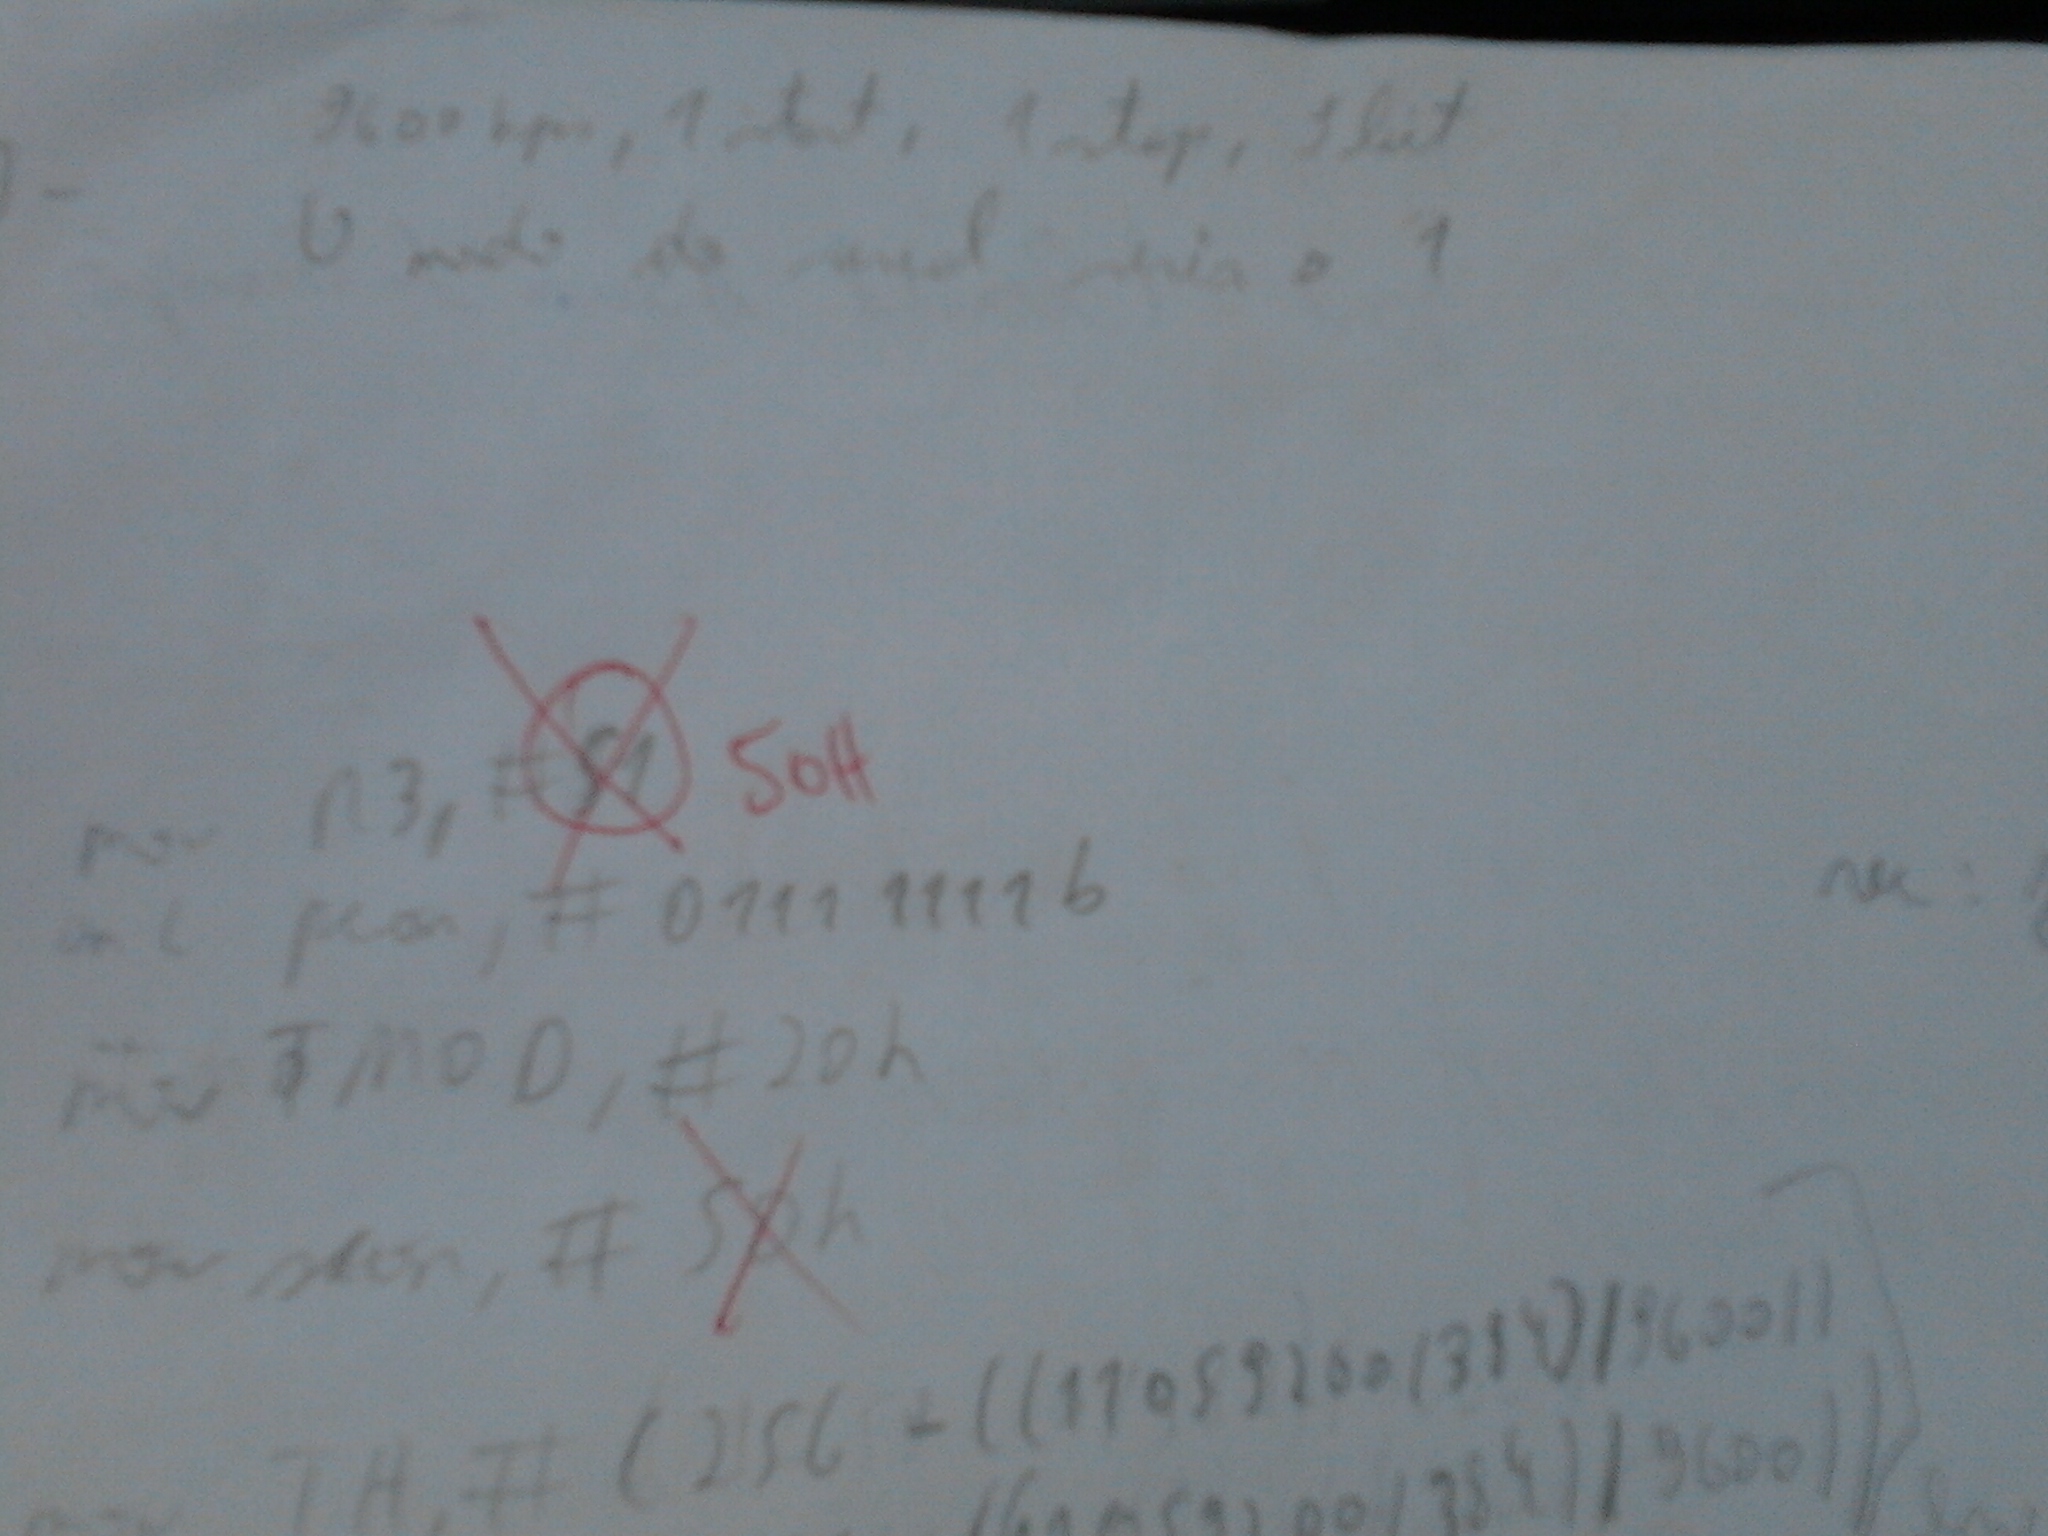 9600 bps, 1 start, 1 stop, 8 bit
O modo do serial seria o 1
mov r3, #51 50H
anl pcon, # 01111111b
rex :
mov TMOD, #20h
mov scon, # 50h
mov TH, # (256 - ((11059200/384)/9600))
11059200/384)/9600))